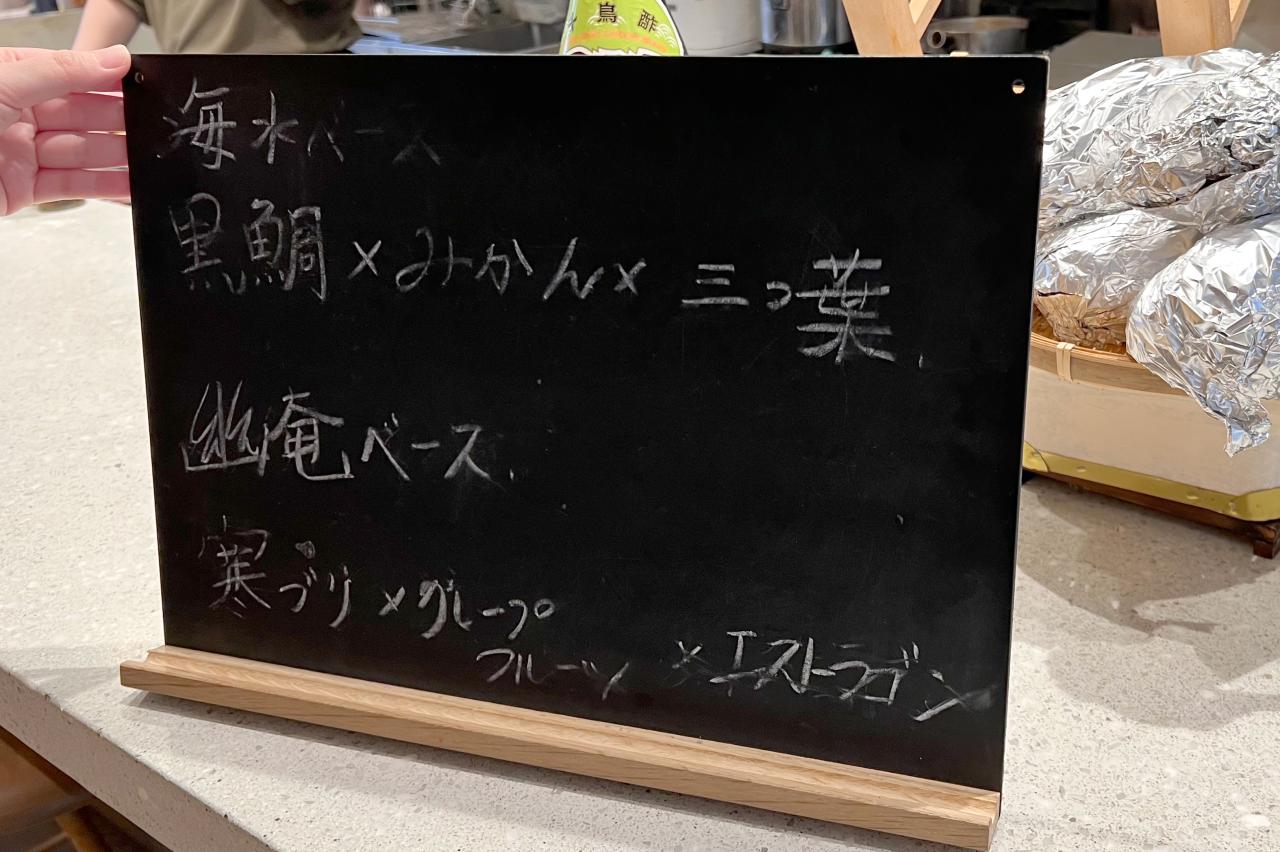 鳥酢
海水ベース
黒鯛×みかん×三つ葉
幽庵ベース
寒ブリ×グレープ
フルーツ×エストラゴン